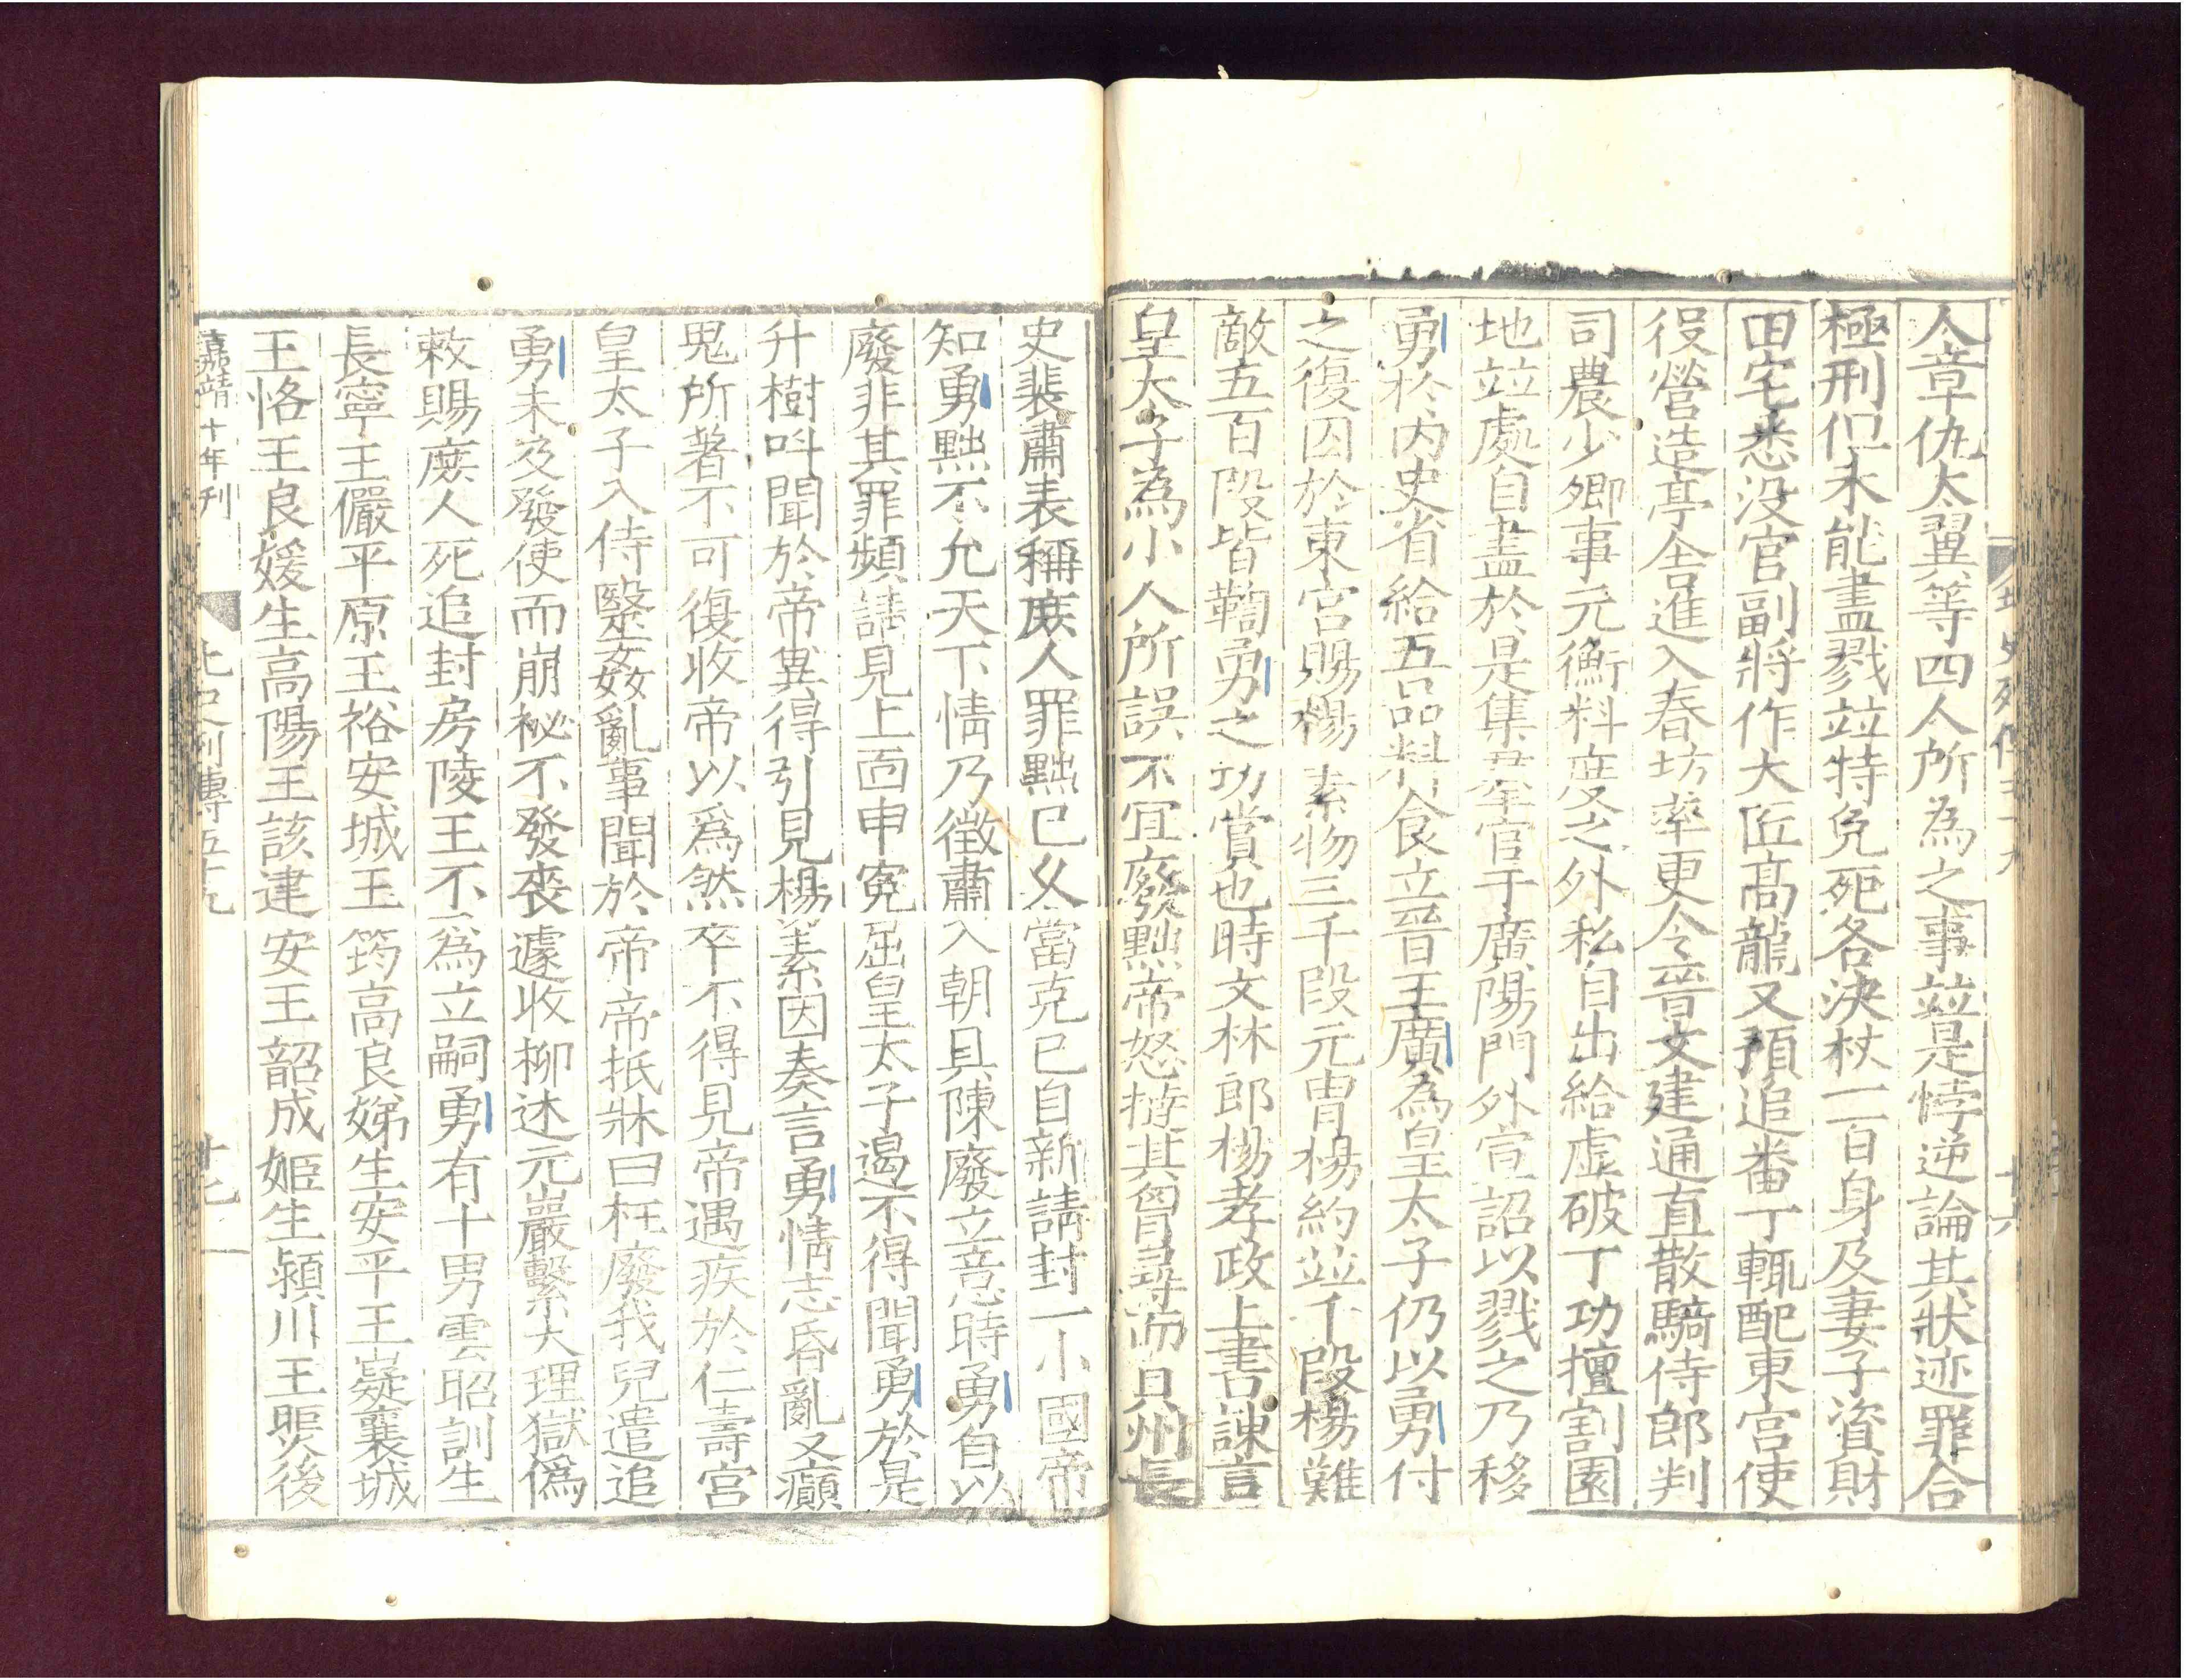 人章仇太翼等四人所為之事竝是悖逆論其狀迹罪合
極刑但未能盡戮竝特免死各決杖一百身及妻子資財
田宅悉没官副將作大匠髙龍又預追番丁輙配東宮使
役營造亭舍進入春坊率更令晉文建通直散騎侍郎判
司農少卿事元衡料度之外私自出給虛破丁功擅割園
地竝處自盡於是集羣官于廣陽門外宣詔以戮之乃移
勇於内史省給五品料食立晉王廣為皇太子仍以勇付
之復囚於東宮賜楊素物三千段元冑楊約竝千段楊難
敵五百段皆鞫勇之功賞也時文林郎楊孝政上書諫言
皇太子為小人所誤不宜廢黜帝怒撻其胷尋而貝州長
史裴肅表稱庶人罪黜已久當克已自新請封一小國帝
知勇黜不允天下情乃徵肅入朝具陳廢立意時勇自以
廢非其罪頻請見上面申寃屈皇太子遏不得聞勇於是
升樹呌聞於帝冀得引見楊素因奏言勇情志昏亂又癲
鬼所著不可復收帝以爲然卒不得見帝遇疾於仁壽宮
皇太子入侍毉姦亂事聞於帝帝抵牀曰枉廢我兒遣追
勇未及發使而崩祕不發喪遽收柳述元巖繫大理獄僞
敕賜庶人死追封房陵王不爲立嗣勇有十男雲昭訓生
長寧王儼平原王裕安城王筠高良娣生安平王嶷襄城
王恪王良媛生高陽王該建安王韶成姬生潁川王煚後
嘉靖十年刊
北史列傳五十九
十七